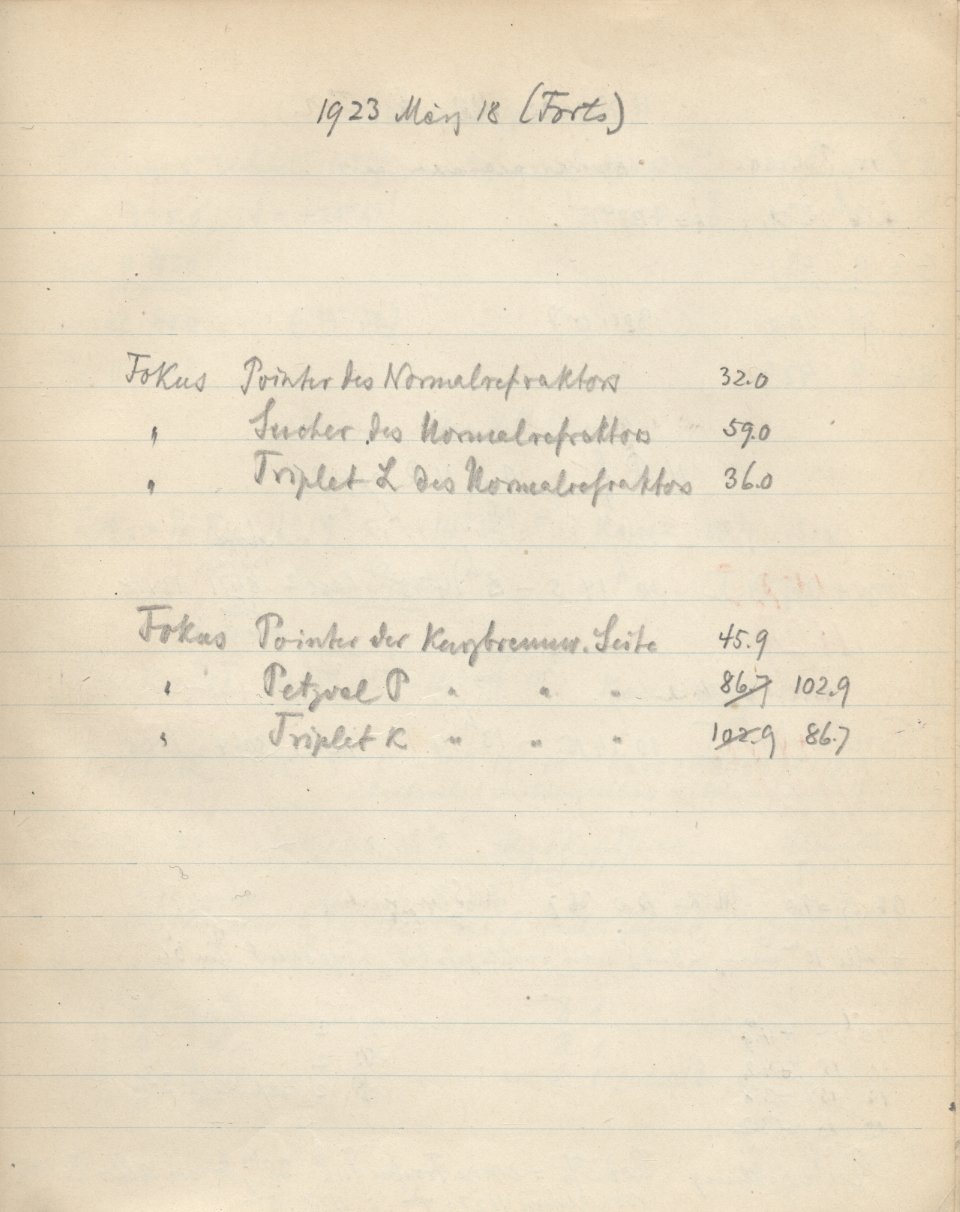 1923 März 18 (Forts)
Fokus Pointer des Normalrefraktors 32.0
" Sucher des Normalrefraktors 59.0
" Triplet L des Normalrefraktors 36.0
Fokus Pointer der Kurzbrennw. Seite 45.9
" Petzval P " " " 86.7 102.9
" Triplet K " " " 102.9 86.7